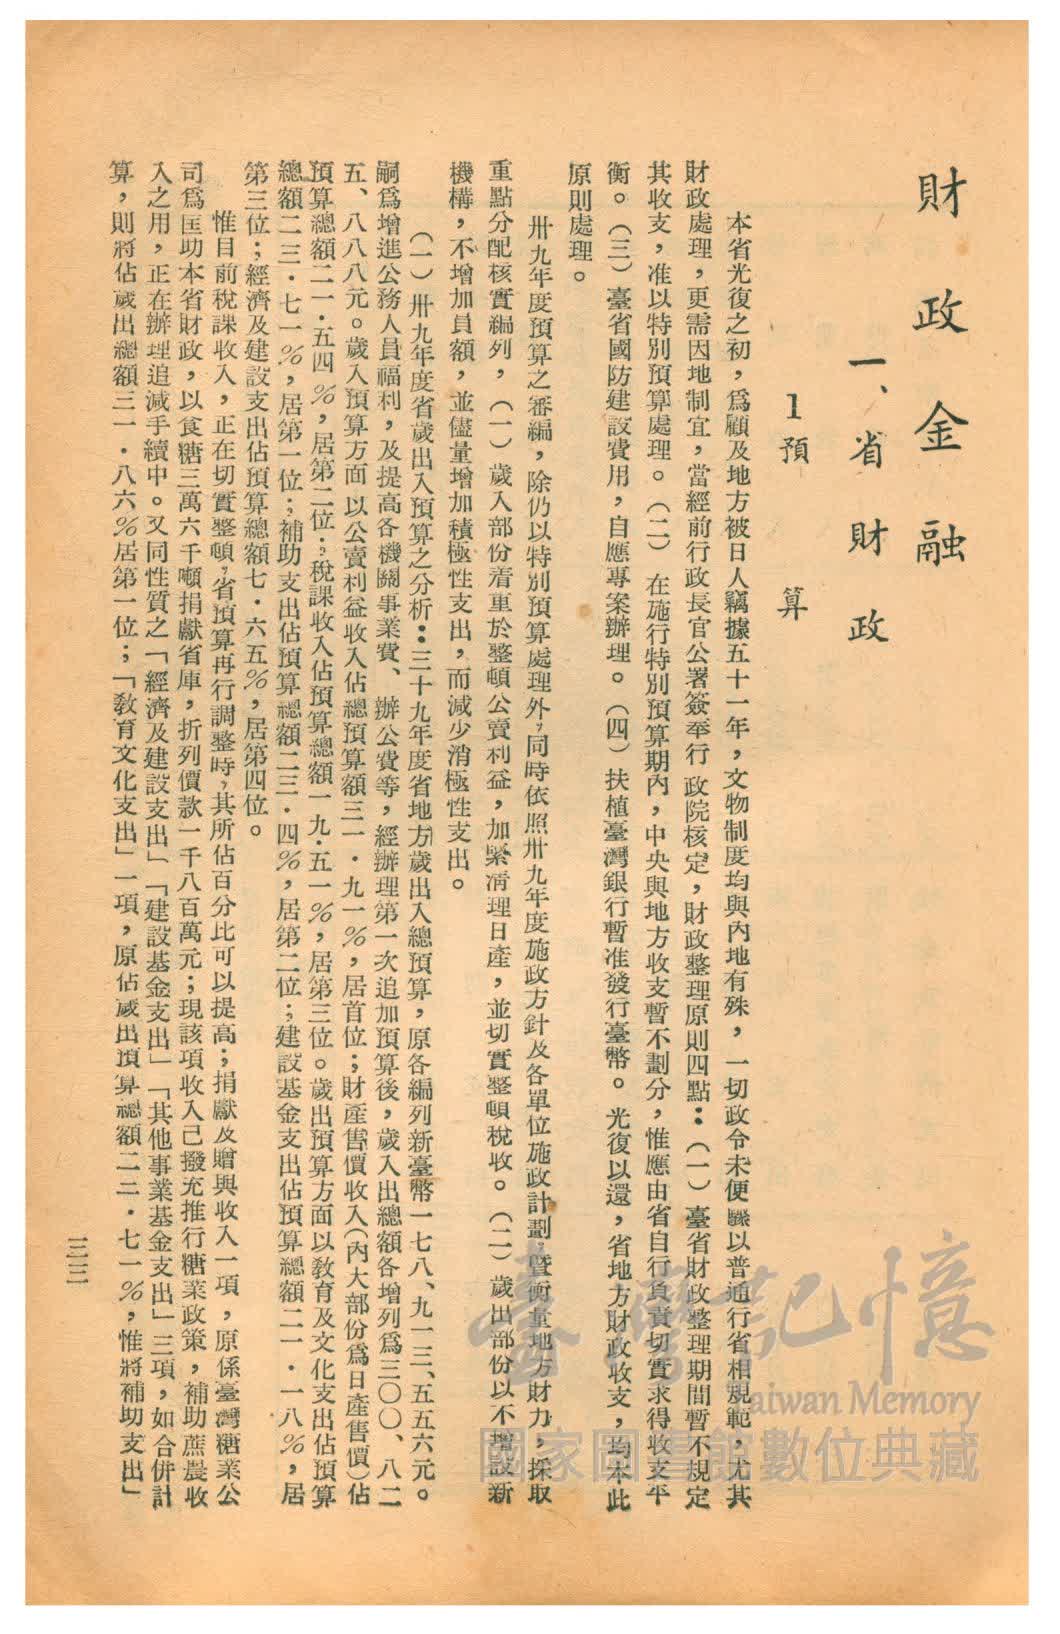 財政金融
一、省財政
1預算
本省光復之初，爲顧及地方被日人竊據五十一年，文物制度均與內地有殊，一切政令未便驟以普通行省相規範，尤其
財政處理，更需因地制宜，當經前行政長官公署簽奉行政院核定，財政整理原則四點：（一）臺省財政整理期間暫不規定
其收支，准以特別預算處理。（二）在施行特別預算期內，中央與地方收支暫不劃分，惟應由省自行負責切實求得收支平
衡。（三）臺省國防建設費用，自應專案辦理。（四）扶植臺灣銀行暫准發行臺幣。光復以還，省地方財政收支，均本此
原則處理。
卅九年度預算之審編，除仍以特別預算處理外，同時依照卅九年度施政方針及各單位施政計劃，暨衡量地方財力，採取
重點分配核實編列，（一）歲入部份着重於整頓公賣利益，加緊清理日產，並切實整頓稅收。（二）歲出部份以不增設新
機構，不增加員額，並儘量增加積極性支出，而減少消極性支出。
（一）卅九年度省歲出入預算之分析：三十九年度省地方歲出入總預算，原各編列新臺幣一七八、九一三、五五六元。
嗣爲增進公務人員福利，及提高各機關事業費、辦公費等，經辦理第一次追加預算後，歲入出總額各增列爲三〇〇、八二
五、八八八元。歲入預算方面以公賣利益收入佔總預算額三一．九一％，居首位；財產售價收入（內大部份爲日產售價）佔
預算總額二一．五四％，居第二位；稅課收入佔預算總額一九．五一％，居第三位。歲出預算方面以教育及文化支出佔預算
總額二三．七一％，居第一位；補助支出佔預算總額二三．四％，居第二位；建設基金支出佔預算總額二一．一八％，居
第三位；經濟及建設支出佔預算總額七．六五％，居第四位。
惟目前稅課收入，正在切實整頓，省預算再行調整時，其所佔百分比可以提高；捐獻及贈與收入一項，原係臺灣糖業公
司爲匡助本省財政，以食糖三萬六千噸捐獻省庫，折列價款一千八百萬元；現該項收入已撥充推行糖業政策，補助蔗農收
入之用，正在辦理追減手續中。又同性質之「經濟及建設支出」「建設基金支出」「其他事業基金支出」三項，如合併計
算，則將佔歲出總額三一．八六％居第一位；「教育文化支出」一項，原佔歲出預算總額二三．七一％，惟將補助支出」
三三
臺灣記憶
Taiwan Memory
國家圖書館數位典藏